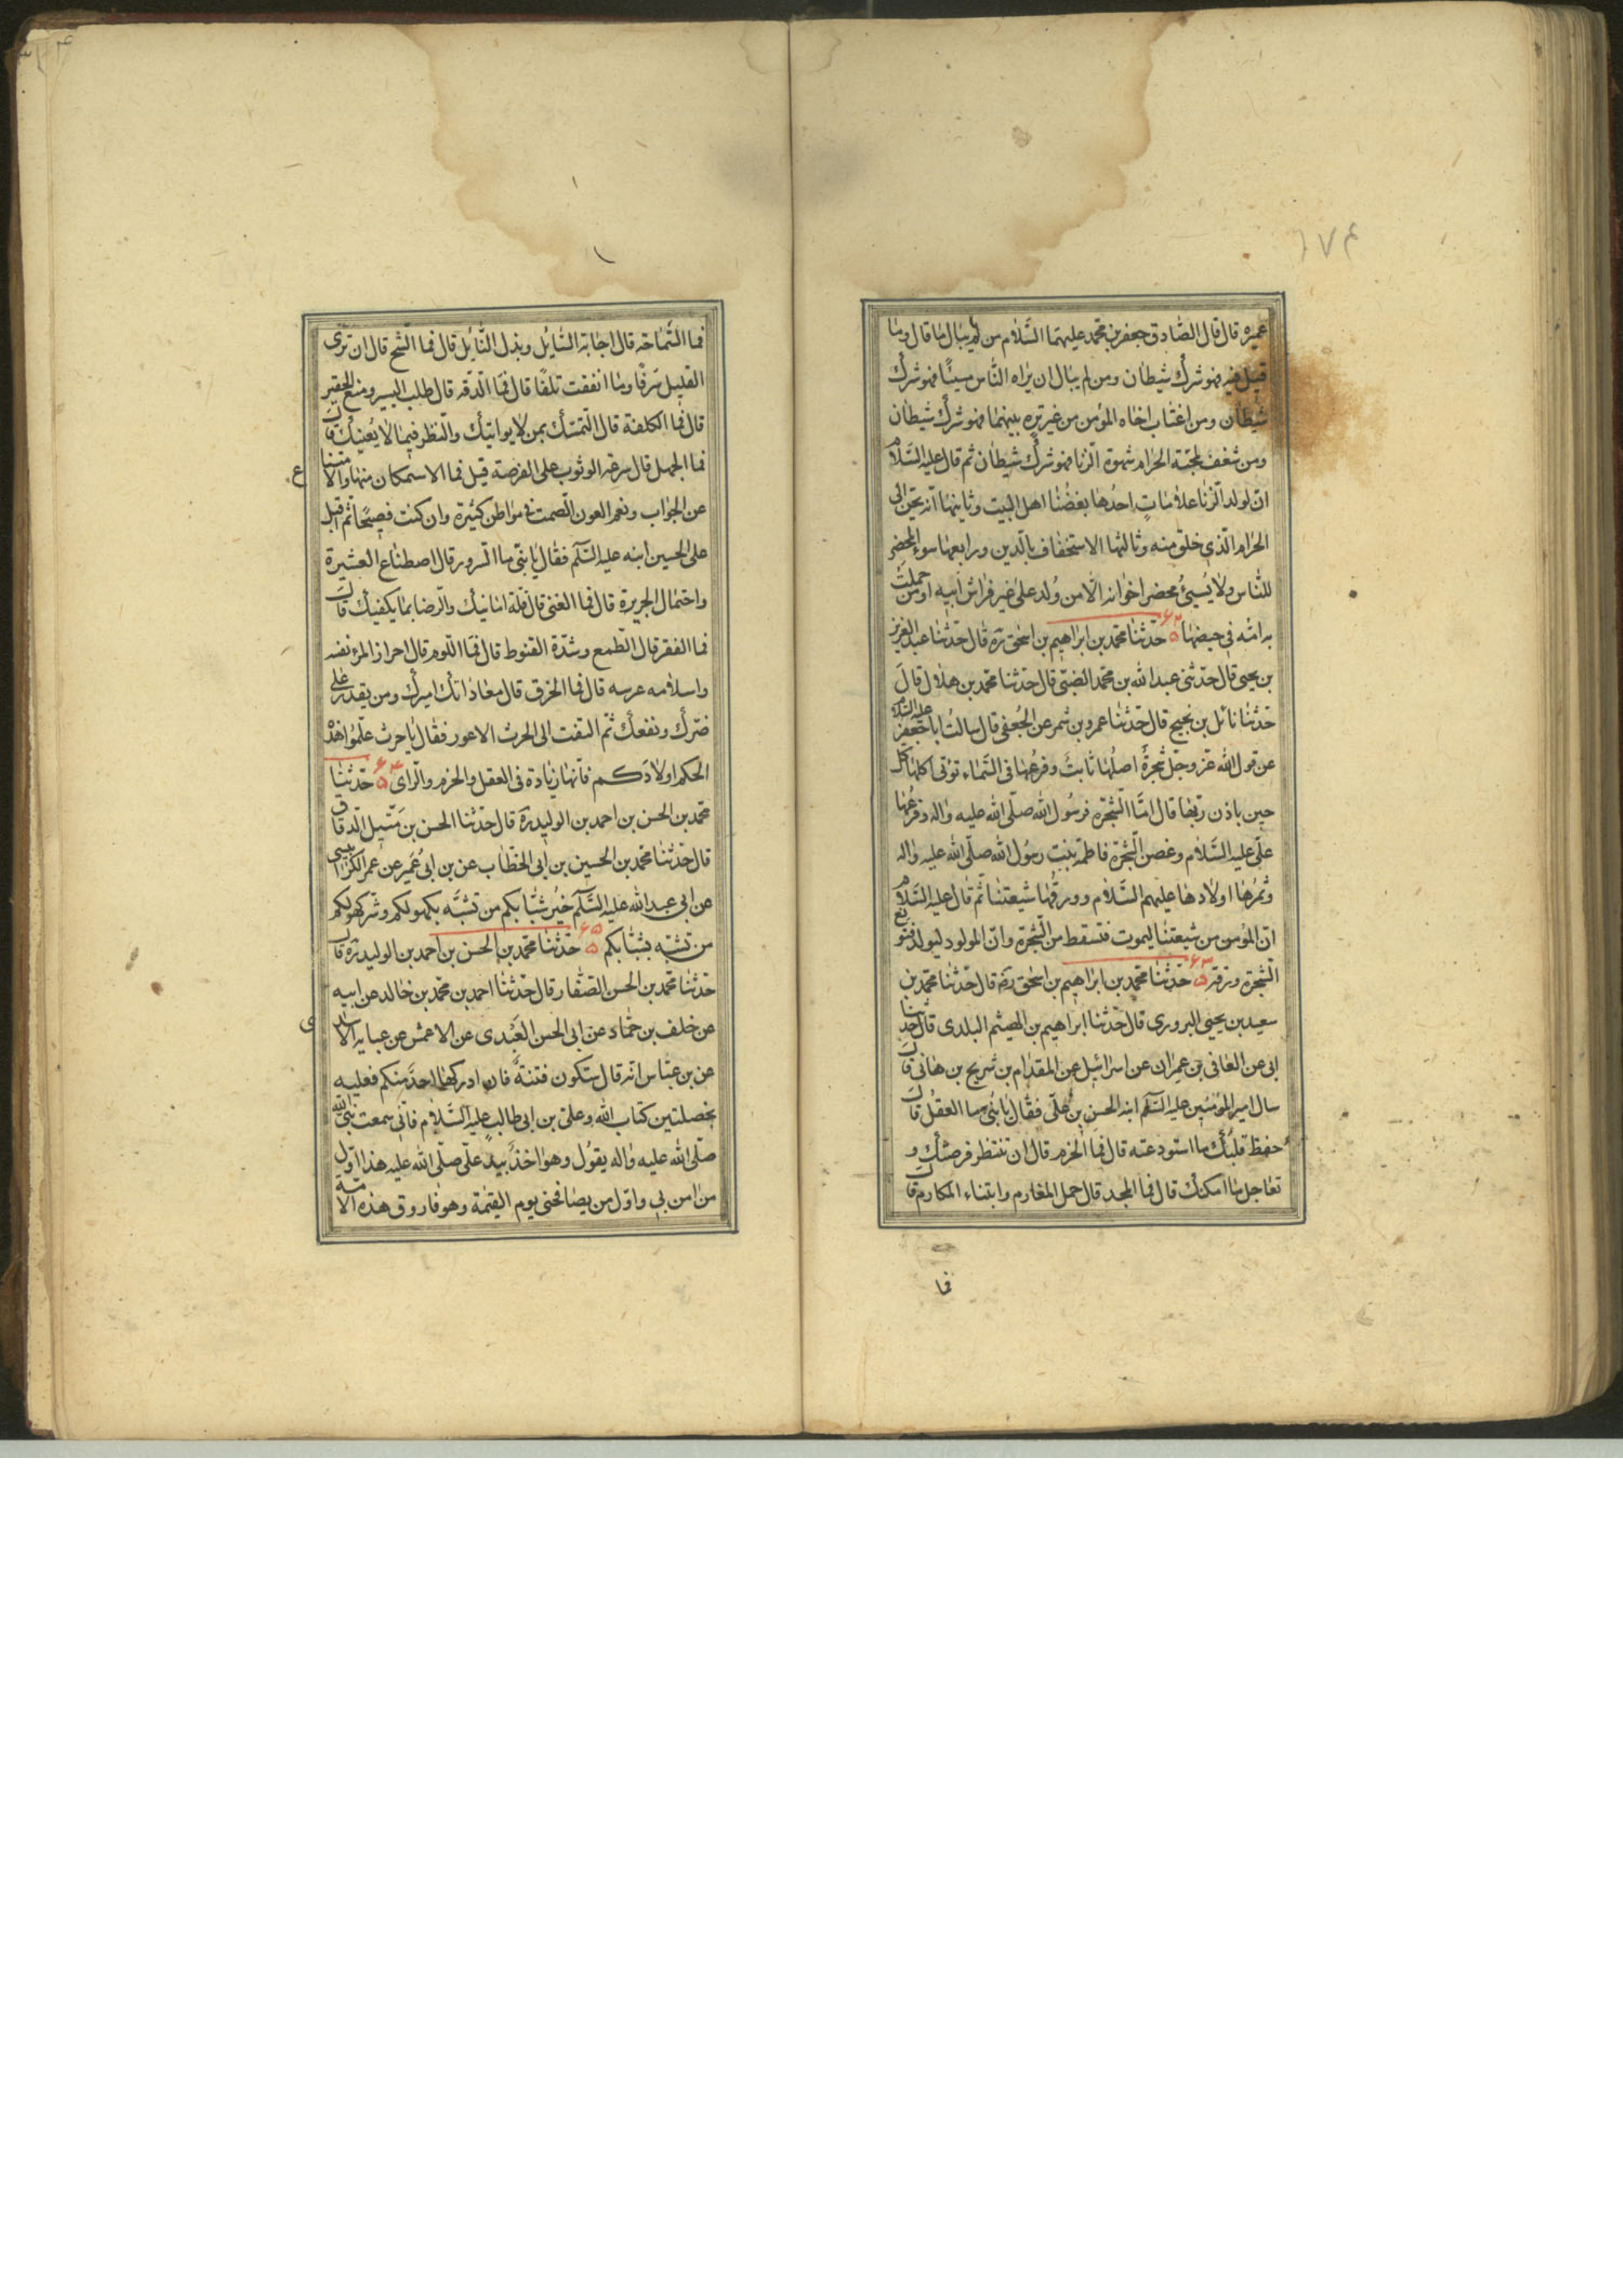 ١٧٤
عميره قال قال الصّادق جعفر بن محمد عليهما السَّلام من لم يبال ما قال وما
قيل فيه فهو شرك شيطان ومن لم يبال ان يراه النّاس مسيئًا فهو شرك
شيطان ومن اغتاب اخاه المؤمن من غير ترة بينهما فهو شرك شيطان
ومن شغف بمحبّة الحرام وشهوة الزّنا فهو شرك شيطان ثم قال عليه السّلام
انّ لولد الزّنا علامات احدُها بغضُنا اهل البيت وثانيها انّه يحن الى
الحرام الّذي خلق منه وثالثها الاستخفاف بالّدين ورابعها سوء المحضر
للنّاس ولا يُسيئُ محضر اخوانه الّا من وُلد على غير فراش ابيه او من حملت
به امّه في حيضها ٦٢ ۵ حدّثنا محمد بن ابراهيم بن اسحق ره قال حدّثنا عبد العزيز
بن يحيى قال حدثنى عبد الله بن محمد الضبّي قال حدثنا محمد بن هلال قال
حدّثنا نائل بن نجيح قال حدّثنا عمرو بن شمر عن الجُعفى قال سالتُ ابا جعفر عليه السّلام
عن قول الله عزّ وجلّ شجرةٌ اصلُها ثابتٌ وفرعُها في السَّماء تؤتى اكلها كلّ
حين باذن ربّها قال امّا الشّجرة فرسُول الله صلّى الله عليه واله وفرعُها
علىّ عليه السَّلام وغصن الشّجرة فاطمة بنت رسُول الله صلّى الله عليه واله
وثمرُها اولادها عليهم السَّلام وورقُها شيعتنا ثمّ قال عليه السَّلام
انّ المؤمن من شيعتنا ليموت فتسقط من الشّجرة وانّ المولود ليولد فتورق
الشّجرة ورقة ٦٣ ۵ حدّثنا محمد بن ابراهيم بن اسحق ره قال حدّثنا محمد بن
سعيد بن يحيى البروري قال حدّثنا ابراهيم بن الهيثم البلدى قال حدثنا
ابي عن المعافى بن عمران عن اسرائيل عن المقدام بن شريح بن هانى قال
سال امير المؤمنين عليه السّلم ابنه الحسن بن علىّ فقال يا بُنى ما العقلُ قال
حفظ قلبُك ما استودعته قال فما الحزم قال ان تنتظر فرصتك و
تعاجل ما امكنك قال فما المجد قال حمل المغارم وابتناء المكارم قال
فما
فما السَّماحة قال اجابة السّايُل وبذل النّايُل قال فما الشّح قال ان ترى
القليل سرفًا وما انفقت تلفًا قال فما الّدقة قال طلب اليسير ومنع الحقير
قال فما الكلفة قال التّمسّك بمن لا يواتيك والنّظر فيما لا يُعنيك قال
فما الجهل قال سرعة الوثوب على الفرصة قيل فما الاستمكان منها والامتناع
عن الجواب ونعم العون الصّمت في مواطن كثيرة وان كنت فصيحًا ثم اقبل
على الحسين ابنه عليه السّلم فقال يا بنّى ما السّرور قال اصطناع العشيرة
واحتمال الجريرة قال فما الغنى قال قلة امانيك والّرضا بما يكفيك قال
فما الفقر قال الطّمع وشدّة القنوط قال فما اللّوم قال احراز المرء نفسه
واسلامه عرسه قال فما الخرق قال معاداتك اميرك ومن يقدر على
ضرّك ونفعك ثمّ التفت الى الحرث الاعور فقال يا حرث علّموا هذه
الحكم اولادكم فانّها زيادة فى العقل والحزم والّراى ٦٤ ۵ حدّثنا
محمد بن الحسن بن احمد بن الوليد ره قال حدّثنا الحسن بن متّيل الّدقاق
قال حدّثنا محمد بن الحسين بن ابى الخطّاب عن بن ابي عُمَير عن عمر الكرابيسي
عن ابى عبد الله عليه السَّلم خيُر شبّابكم من تشبّه بكهولكم وشرّ كهولكم
من تشبّه بشبّابكم ٦٥ ۵ حدّثنا محمد بن الحسن بن احمد بن الوليد ره قال
حدّثنا محمد بن الحسن الصفّار قال حدّثنا احمد بن محمد بن خالد عن ابيه
عن خلف بن حمّاد عن ابى الحسن العَبْدى عن الاعمش عن عبايه الاسدى
عن بن عبّاس انّه قال ستكون فتنةٌ فان ادركها احدٌ منكم فعليه
بخصلتين كتاب الله وعلىّ بن ابى طالب عليه السَّلام فانّي سمعت نبّى الله
صلّى الله عليه واله يقول وهو اخذٌ بيد علىّ صلّى الله عليه هذا اوّل
من امن بي واوّل من يصافحنى يوم القيمة وهو فاروق هذه الامّة